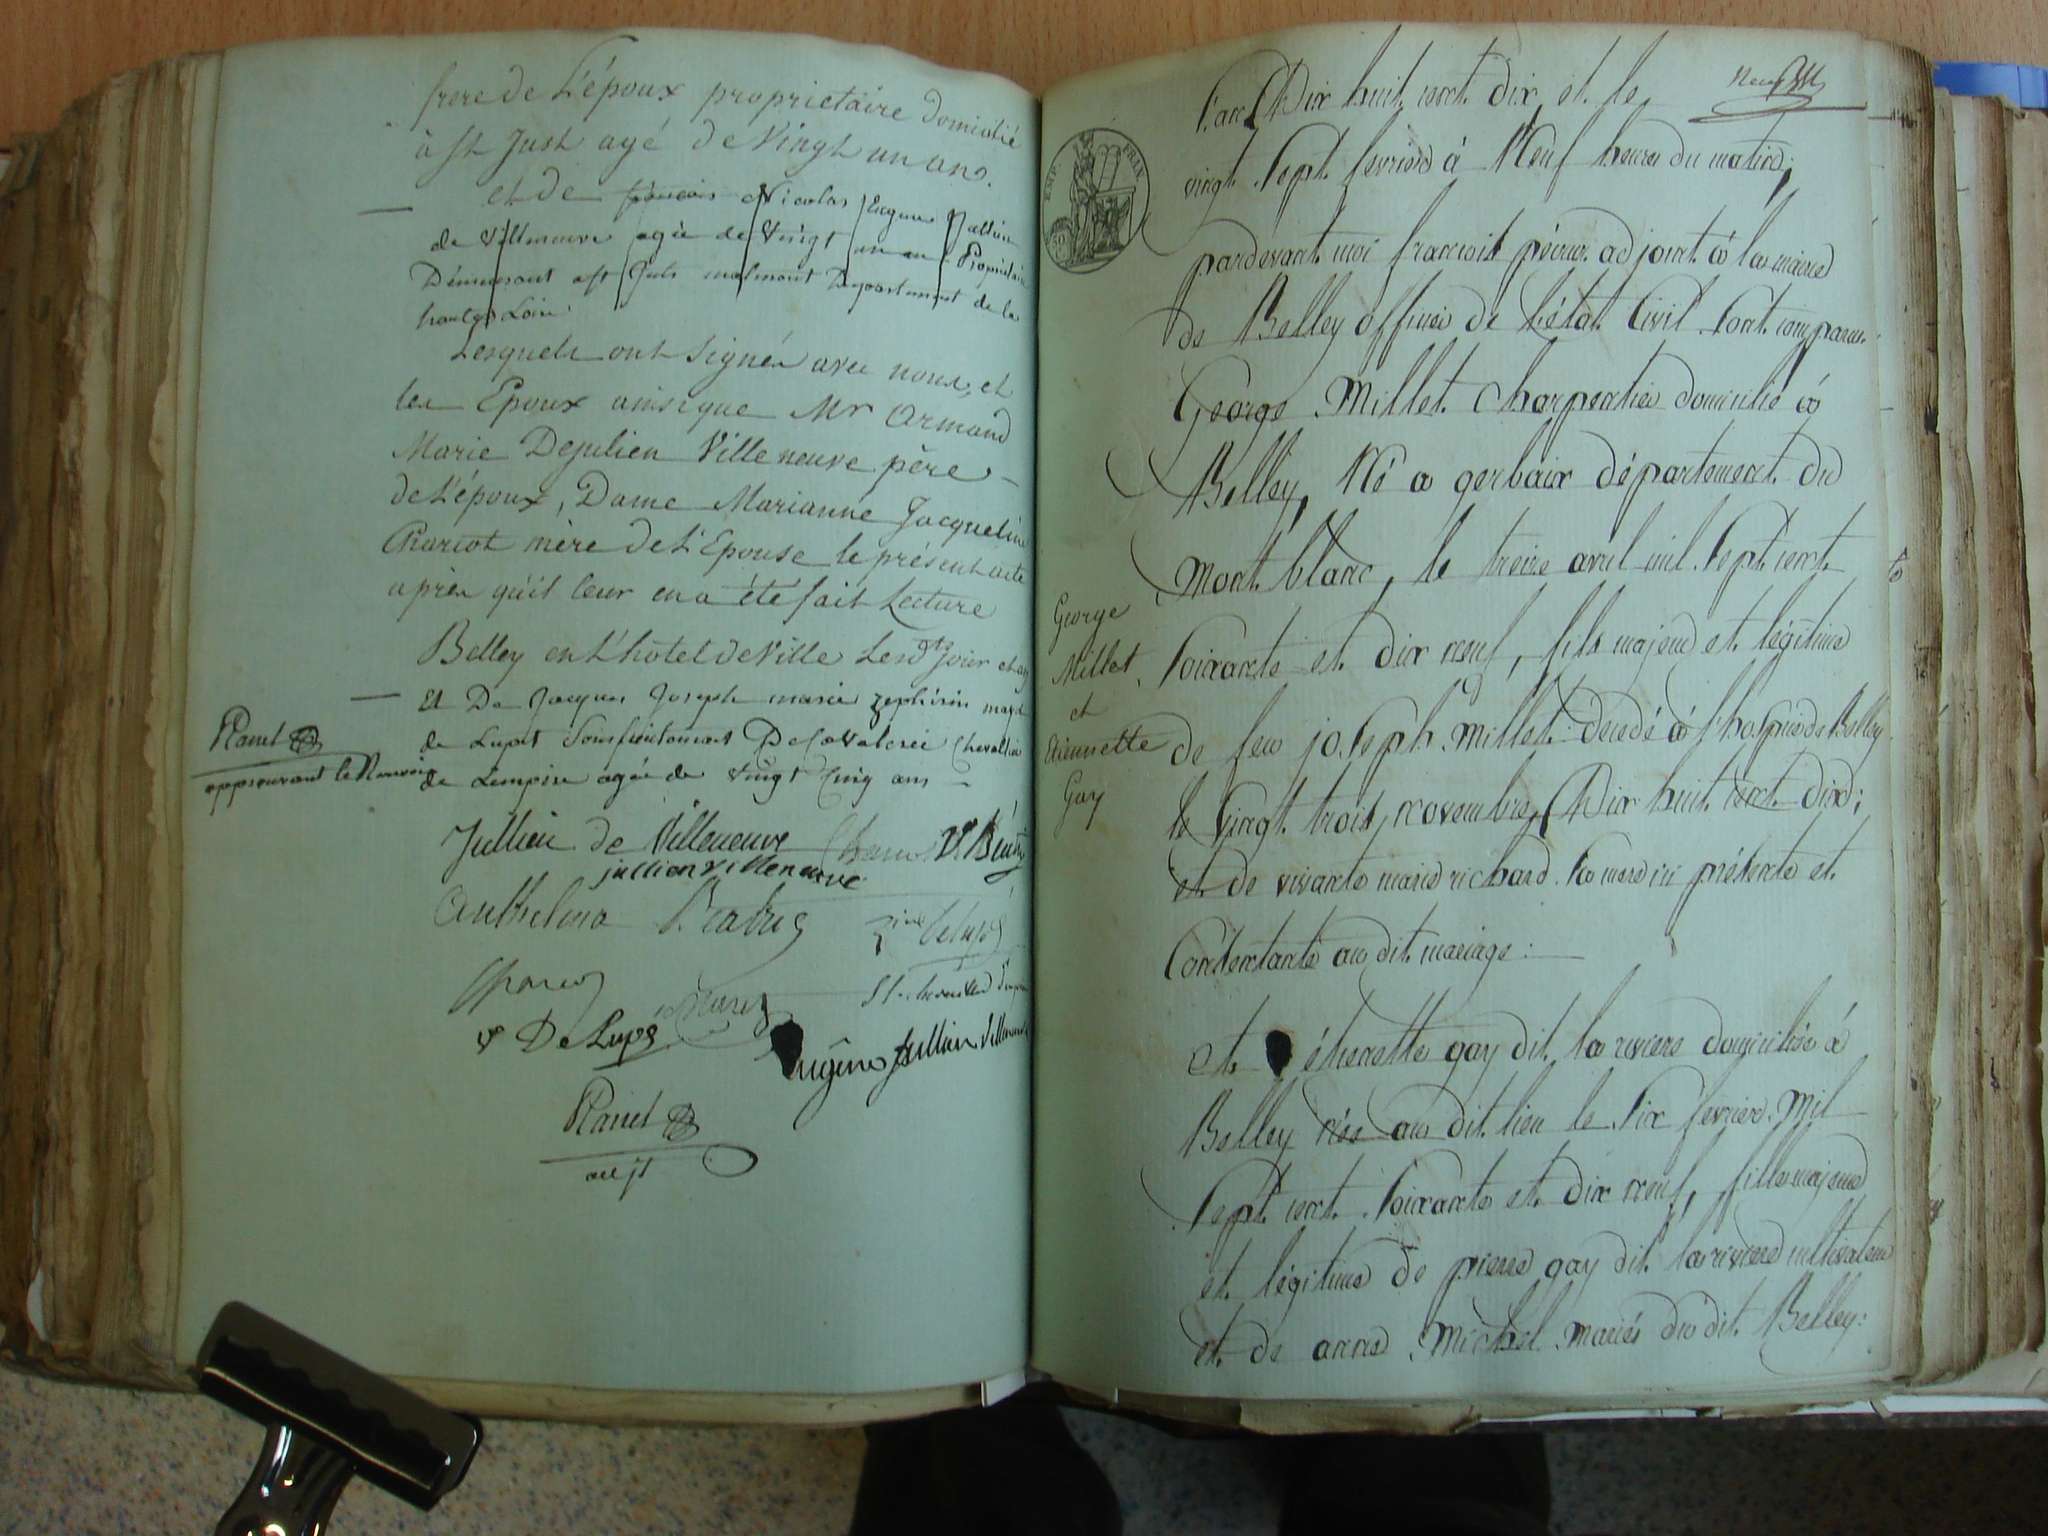 frere de L'époux proprietaire Domicilié
à St Just agé de Vingt un ans.
et de françois Nicolas Eugene Jullien
de Villeneuve agée de Vingt un an Propriétaire
Demeurant a St Just malmont Departement de la
haute Loire.
Lesquels ont signés avec nous, et
les Epoux ainsi que Mr Armand
Marie Dejulien Villeneuve père
de L'époux, Dame Marianne Jacqueline
Charcot mère de L'Epouse le présent acte
après qu'il leur en a été fait Lecture
Belley en L'hôtel de Ville Les dts jour et an
Et De Jacques Joseph marie zephirin
de Lupé Souslieutenant De Cavalerie Chevallier
de L'empire agée de Vingt Cinq ans
Planet
approuvant le Renvoi
Jullien de Villeneuve
jullien villeneuve
De Lupé
Eugène Jullien Villeneuve
Planet
adjt
Neuf
L'an Dix huit cent dix et le
vingt sept fevrier à Neuf heures du matin,
pardevant moi françois adjoint à la mairie
de Belley officier de l'état Civil sont comparus
EMP. FRAN.
George Millet Charpentier domicilié à
Belley, Né a gerbaix département du
mont blanc, le treize avril mil sept cent
soixante et dix neuf, fils majeur et légitime
de feu joseph Millet décédé à l'hospice de Belley
le Vingt trois novembre Dix huit cent dix;
et de vivante marie richard sa mere ici présente et
Consentante au dit mariage :
George
Millet
et
Etiennette
Gay
et étienette gay dit la riviere domiciliée à
Belley née au dit lieu le six fevrier mil
sept cent soixante et dix neuf, fille majeure
et légitime de pierre gay dit la riviere cultivateur
et de anne Michel mariés du dit Belley: